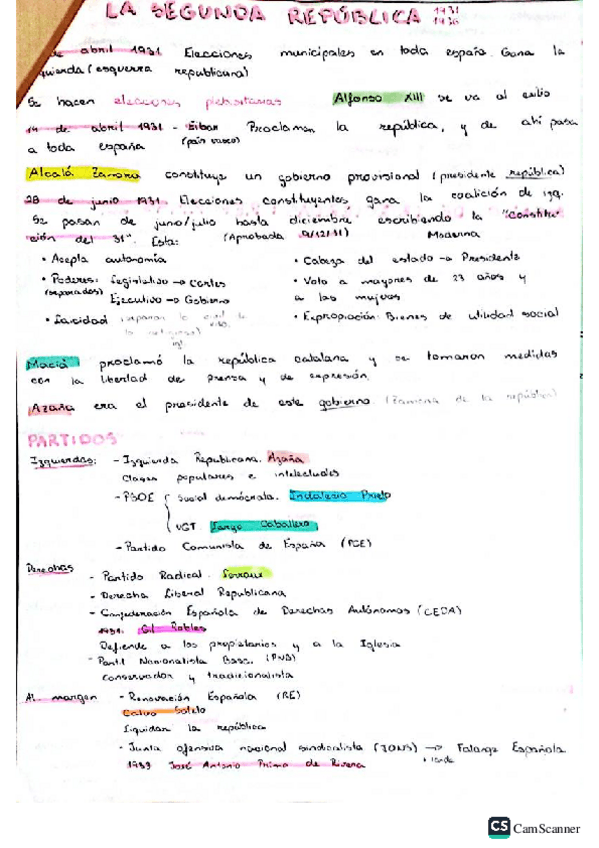 LA SEGUNDA REPÚBLICA 1931 1936
de abril 1931 Elecciones municipales en toda españa. Gana la
izquierda (esquerra republicana)
Se hacen elecciones plebiscitarias Alfonso XIII se va al exilio
14 de abril 1931 - Eibar Proclaman la república, y de ahí pasa
a toda españa (país vasco)
Alcalá Zamora constituye un gobierno provisional (presidente república)
28 de junio 1931. Elecciones constituyentes, gana la coalición de izq.
Se pasan de junio/julio hasta diciembre escribiendo la "Constitu-
ción del 31". Esta: (Aprobada 9/12/31) Moderna
• Acepta autonomía
• Cabeza del estado → Presidente
• Poderes: Legislativo → Cortes
(separados) Ejecutivo → Gobierno
• Voto a mayores de 23 años y
a las mujeres
• Laicidad
• Expropiación: Bienes de utilidad social
Maciá proclamó la república catalana y se tomaron medidas
con la libertad de prensa y de expresión.
Azaña era el presidente de este gobierno. (Zamora de la república)
PARTIDOS
Izquierdas: - Izquierda Republicana. Azaña
Clases populares e intelectuales
- PSOE { Social demócrata. Indalecio Prieto
UGT Largo Caballero
- Partido Comunista de España (PCE)
Derechas
- Partido Radical. Lerroux
- Derecha Liberal Republicana
- Confederación Española de Derechas Autónomas (CEDA)
Gil Robles
Defiende a los propietarios y a la Iglesia
- Part. Nacionalista Basc. (PNB)
Conservador y tradicionalista
Al margen - Renovación Española (RE)
Calvo Sotelo
Liquidar la república
- Junta ofensiva nacional sindicalista (JONS) → Falange Española
+ tarde
1933 José Antonio Primo de Rivera
CS CamScanner